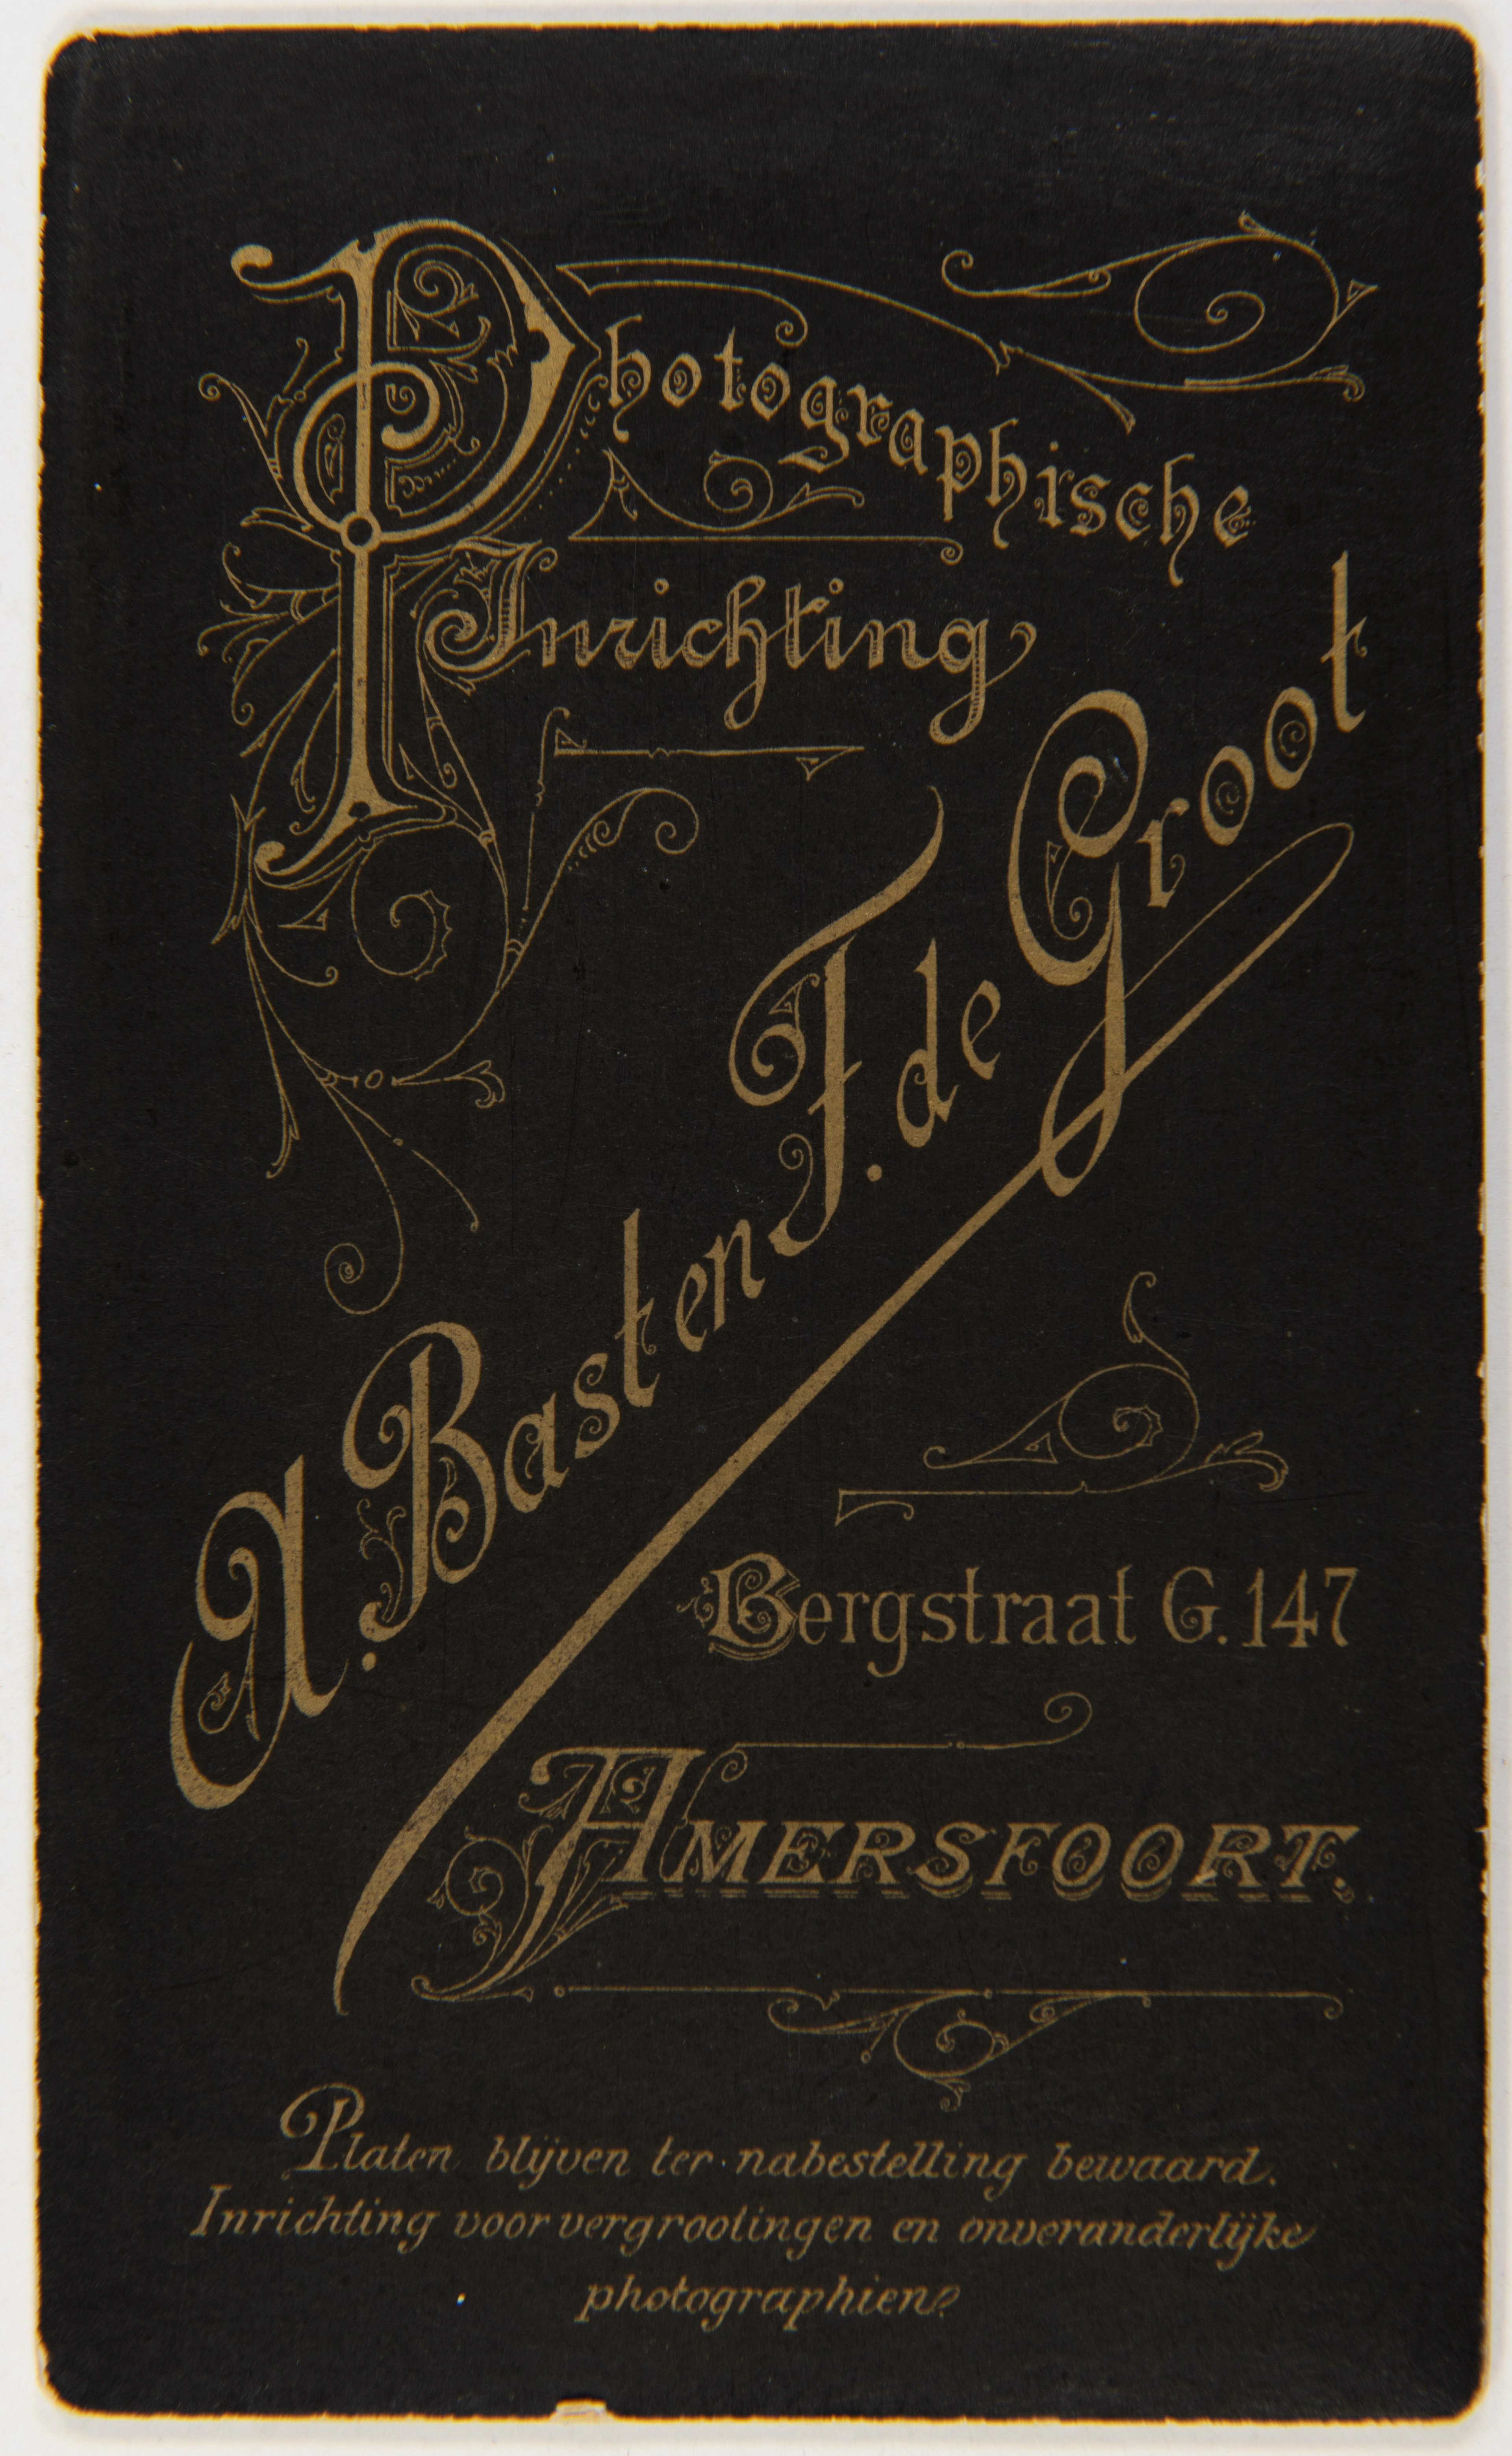 Photographische
Inrichting
A. Basten F. de Groot
Bergstraat G. 147
AMERSFOORT.
Platen blijven ter nabestelling bewaard.
Inrichting voor vergrootingen en onveranderlijke
photographien